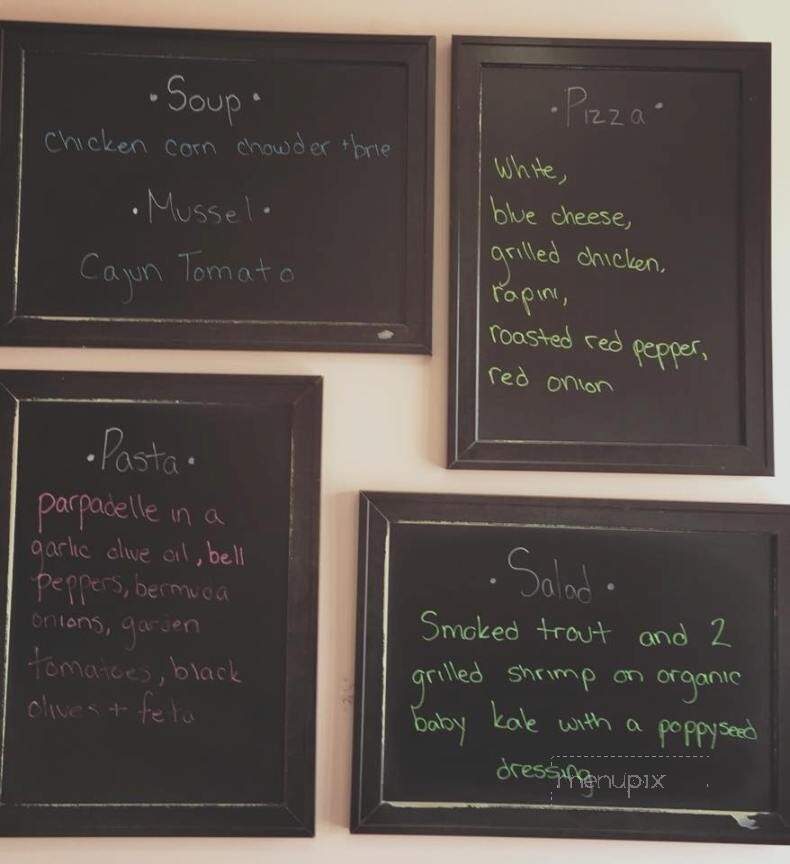 • Soup •
chicken corn chowder + brie
• Mussel •
Cajun Tomato
• Pizza •
White,
blue cheese,
grilled chicken,
rapini,
roasted red pepper,
red onion
• Pasta •
parpadelle in a
garlic olive oil, bell
peppers, bermuda
onions, garden
tomatoes, black
olives + feta
• Salad •
Smoked trout and 2
grilled shrimp on organic
baby kale with a poppyseed
dressing
menupix